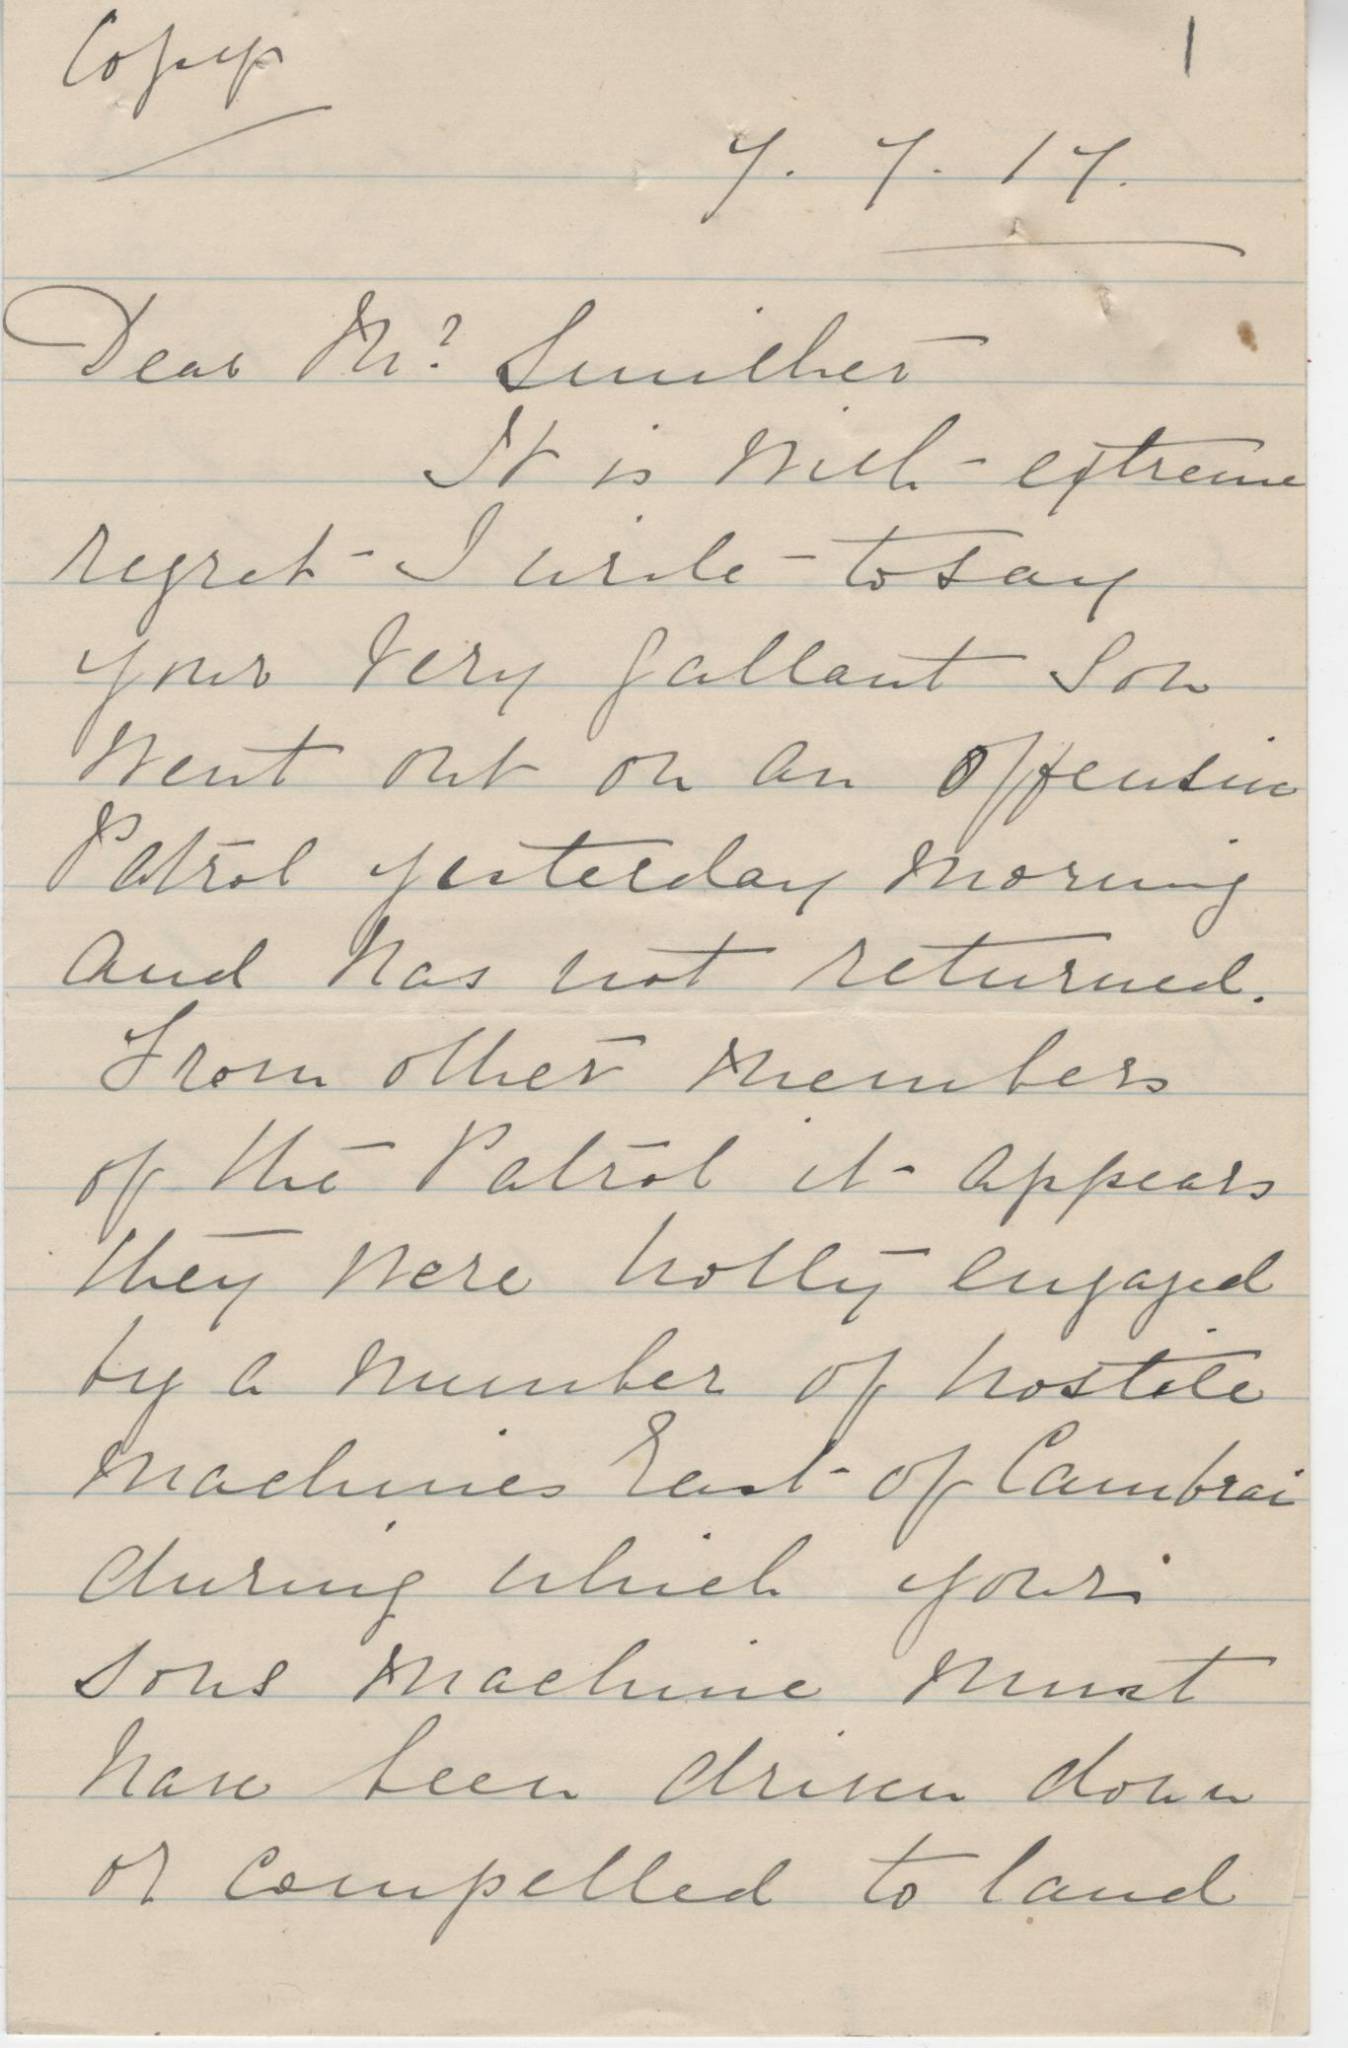 Copy
1
7. 7. 17.
Dear Mr. Smither
It is with extreme
regret - I write - to say
your very gallant son
went out on an offensive
Patrol yesterday morning
and has not returned.
From other members
of the Patrol it - appears
they were hotly engaged
by a number of hostile
machines East - of Cambrai
during which your
sons machine must
have been driven down
or compelled to land